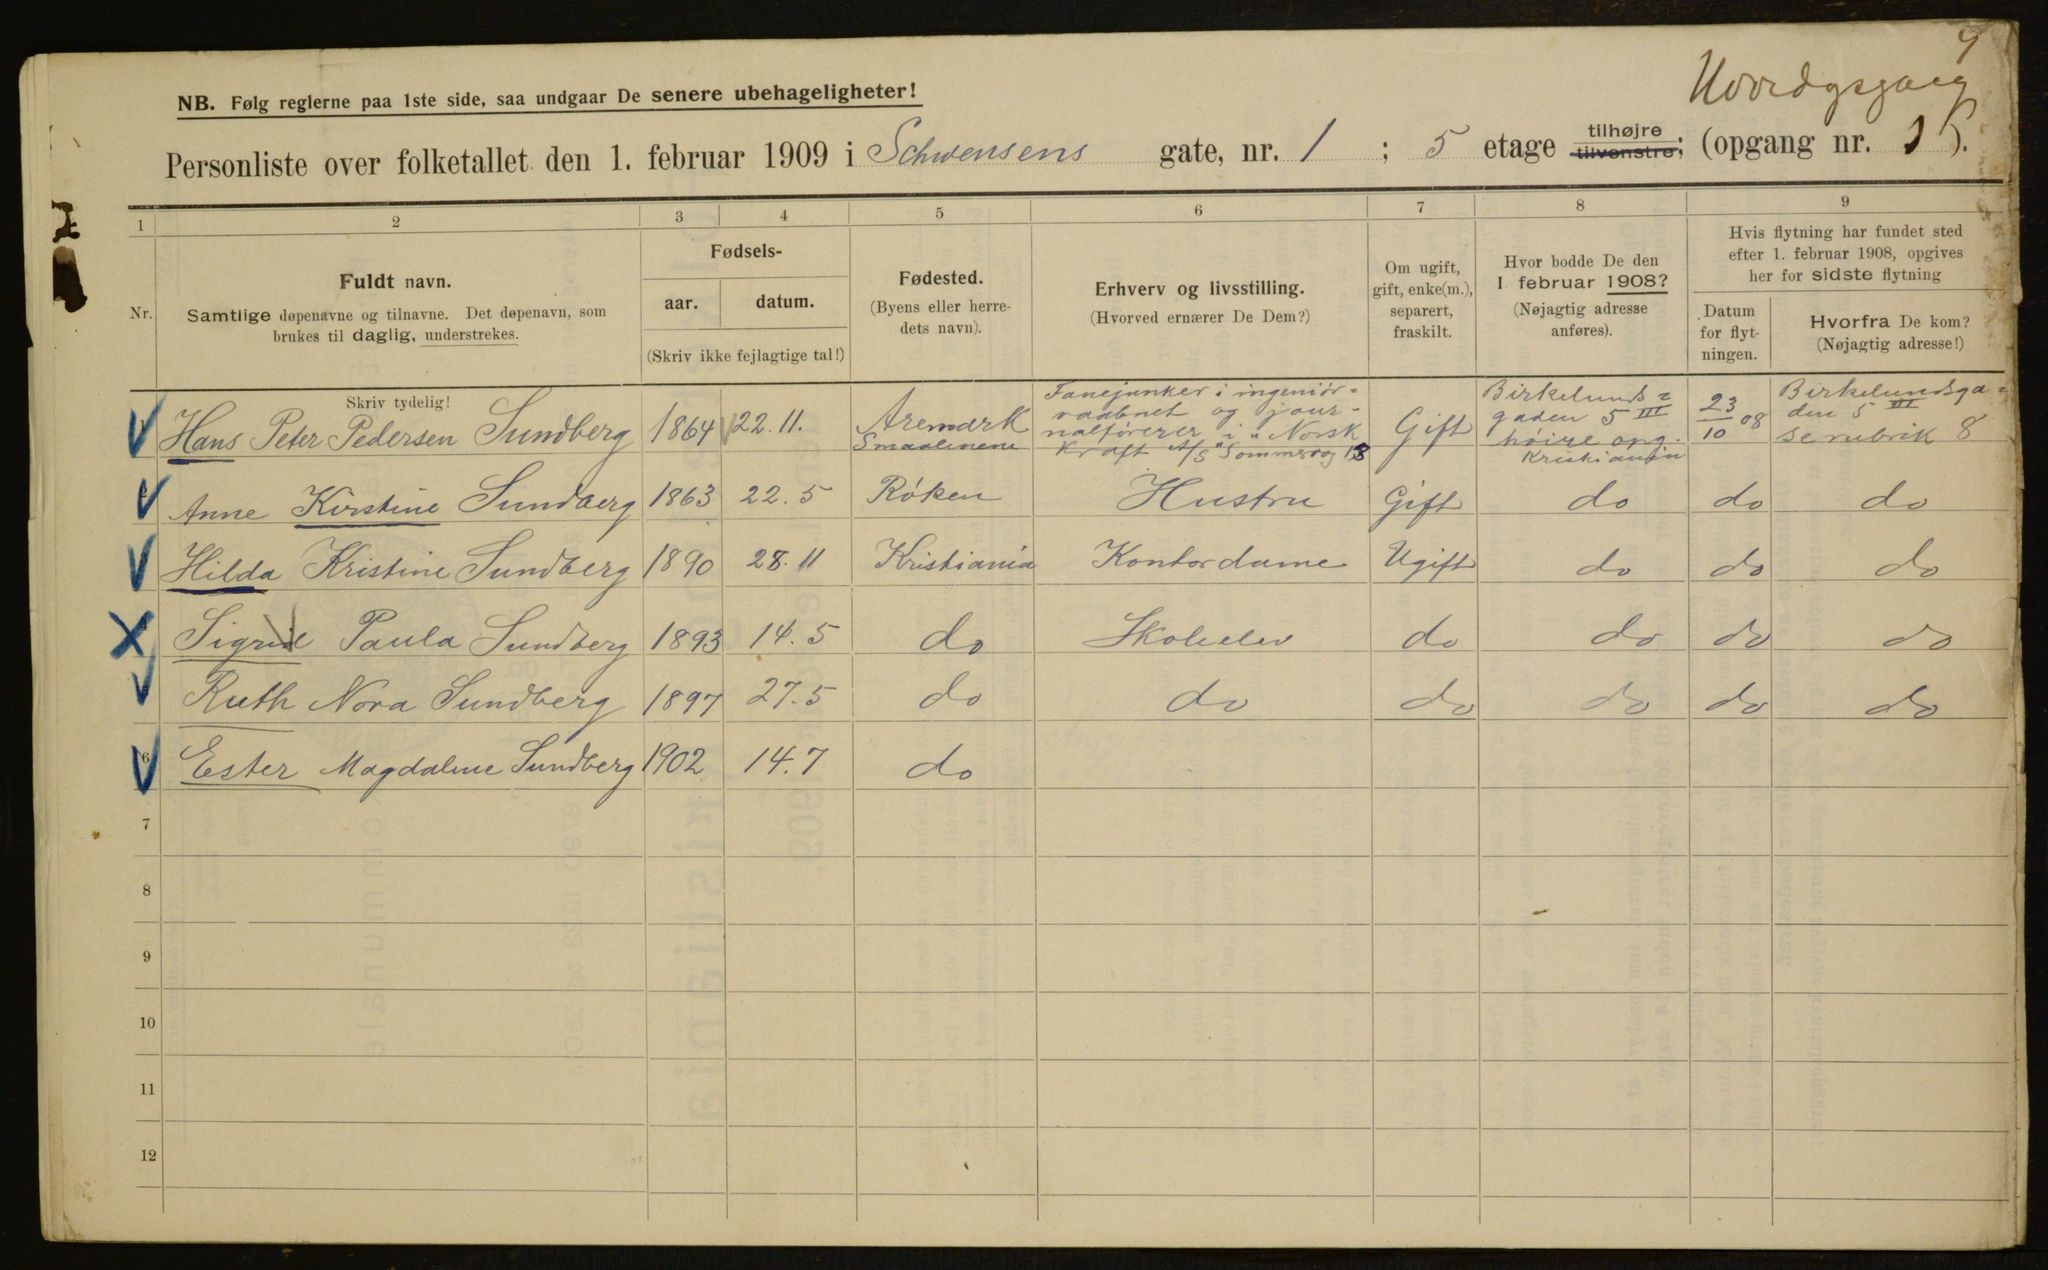 9
NB. Følg reglerne paa 1ste side, saa undgaar De senere ubehageligheter!
Personliste over folketallet den 1. februar 1909 i Schwensens gate, nr. 1 ; 5 etage tilhøjre tilvenstre; (opgang nr. ).
1 2 3 4 5 6 7 8 9
Nr.
Fuldt navn.
Samtlige døpenavne og tilnavne. Det døpenavn, som
brukes til daglig, understrekes.
Skriv tydelig!
Fødsels-
aar. datum.
(Skriv ikke fejlagtige tal!)
Fødested.
(Byens eller herre-
dets navn).
Erhverv og livsstilling.
(Hvorved ernærer De Dem?)
Om ugift,
gift, enke(m.),
separert,
fraskilt.
Hvor bodde De den
1 februar 1908?
(Nøjagtig adresse
anføres).
Hvis flytning har fundet sted
efter 1. februar 1908, opgives
her for sidste flytning
Datum
for flyt-
ningen.
Hvorfra De kom?
(Nøjagtig adresse!)
Hans Peter Pedersen Sundberg 1864 22.11. Aremark
Smaalenene
Fanejunker i ingeniør-
vaabnet og jour-
nalfører i "Norsk
Kraft A/S"
Gift
Birkelunds=
gaden 5 III
høire opg.
Kristiania
23/10 08
Birkelundsga=
den 5 III
se rubrik 8
Anne Kirstine Sundberg 1863 22.5 Røken Hustru Gift do do do
Hilda Kristine Sundberg 1890 28.11 Kristiania Kontordame Ugift do do do
Sigrid Paula Sundberg 1893 14.5 do Skoleelev do do do do
Ruth Nora Sundberg 1897 27.5 do do do do do do
6 Ester Magdalene Sundberg 1902 14.7 do
7
8
9
10
11
12